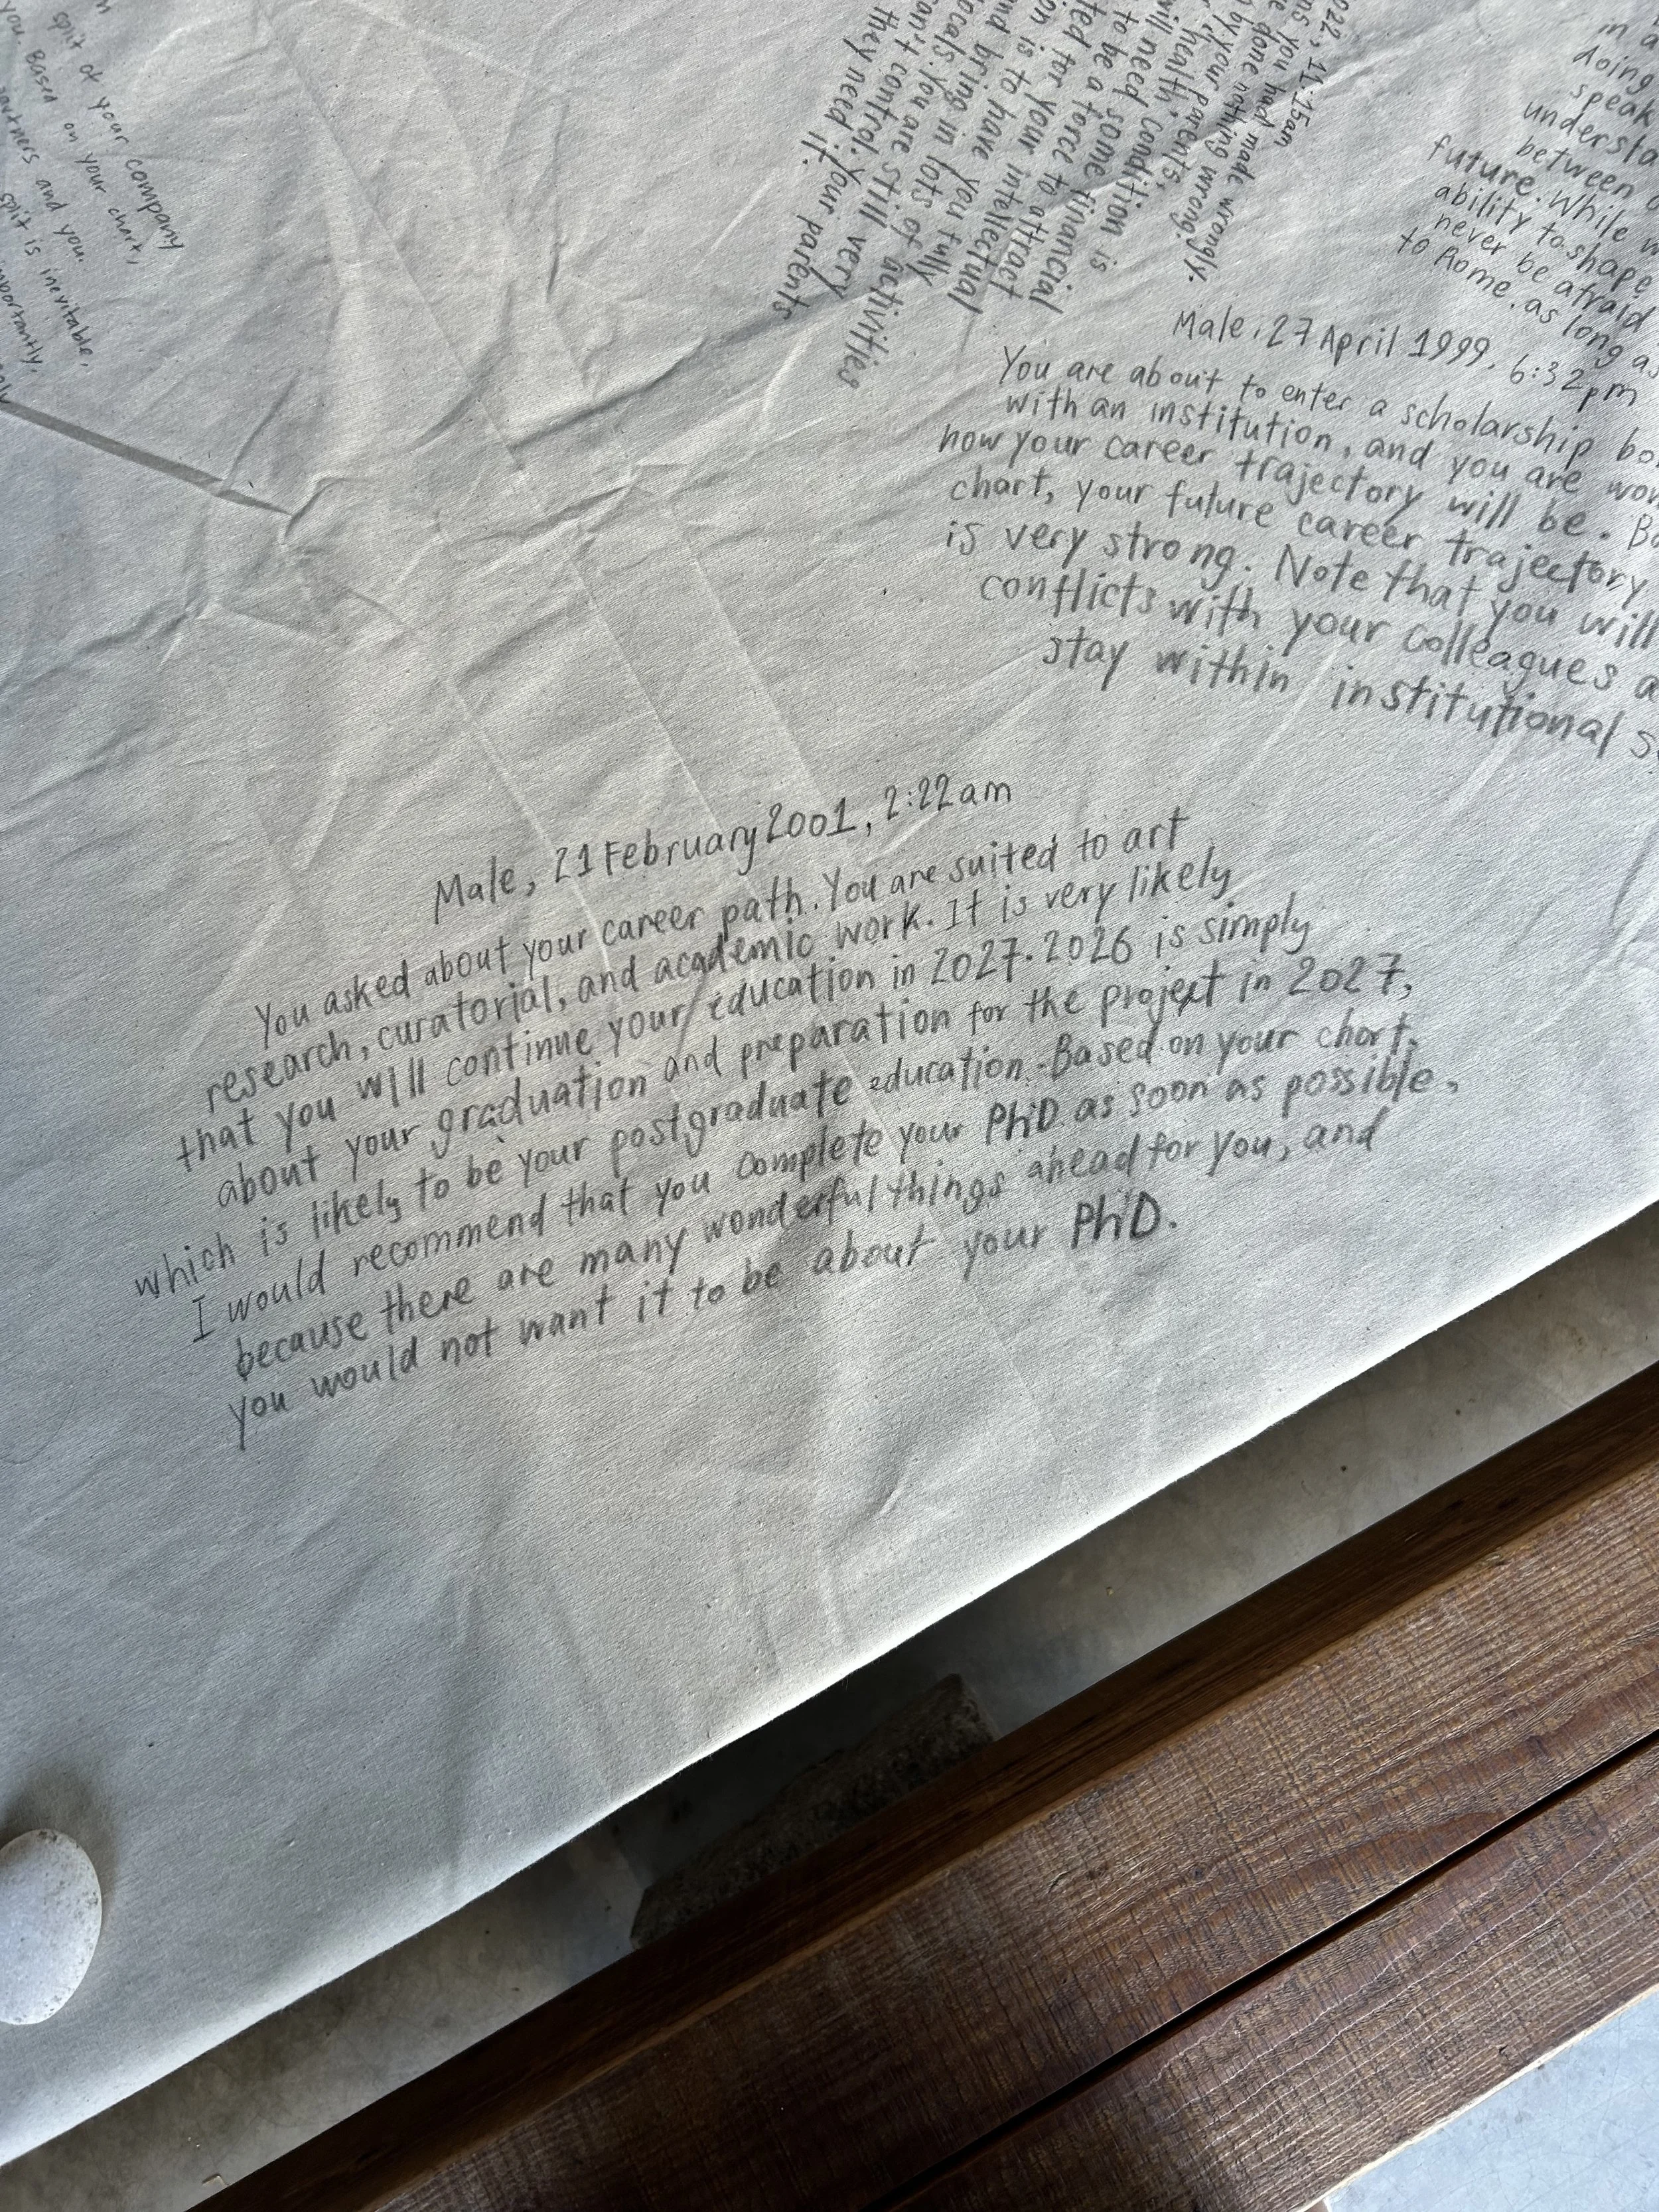 split of your company
you. Based on your chart,
partners and you.
split is inevitable,
importantly,
2022, 11:15am
you had made wrongly.
done nothing wrong.
by your parents,
health condition is
will need some financial
to be a force to attract
ted for your intellectual
on is to have you fully
nd bring in lots of activities
locals. You are still very
can't control. Your parents
they need it.
in a
doing
speak
understa
between
future. While w
ability to shape
never be afraid
to Rome. as long as
Male, 27 April 1999, 6:32pm
You are about to enter a scholarship bo
with an institution, and you are wor
how your career trajectory will be. Ba
chart, your future career trajectory
is very strong. Note that you will
conflicts with your colleagues a
stay within institutional s
Male, 21 February 2001, 2:22am
You asked about your career path. You are suited to art
research, curatorial, and academic work. It is very likely
that you will continue your education in 2027. 2026 is simply
about your graduation and preparation for the project in 2027,
which is likely to be your postgraduate education. Based on your chart,
I would recommend that you complete your PhD as soon as possible,
because there are many wonderful things ahead for you, and
you would not want it to be about your PhD.